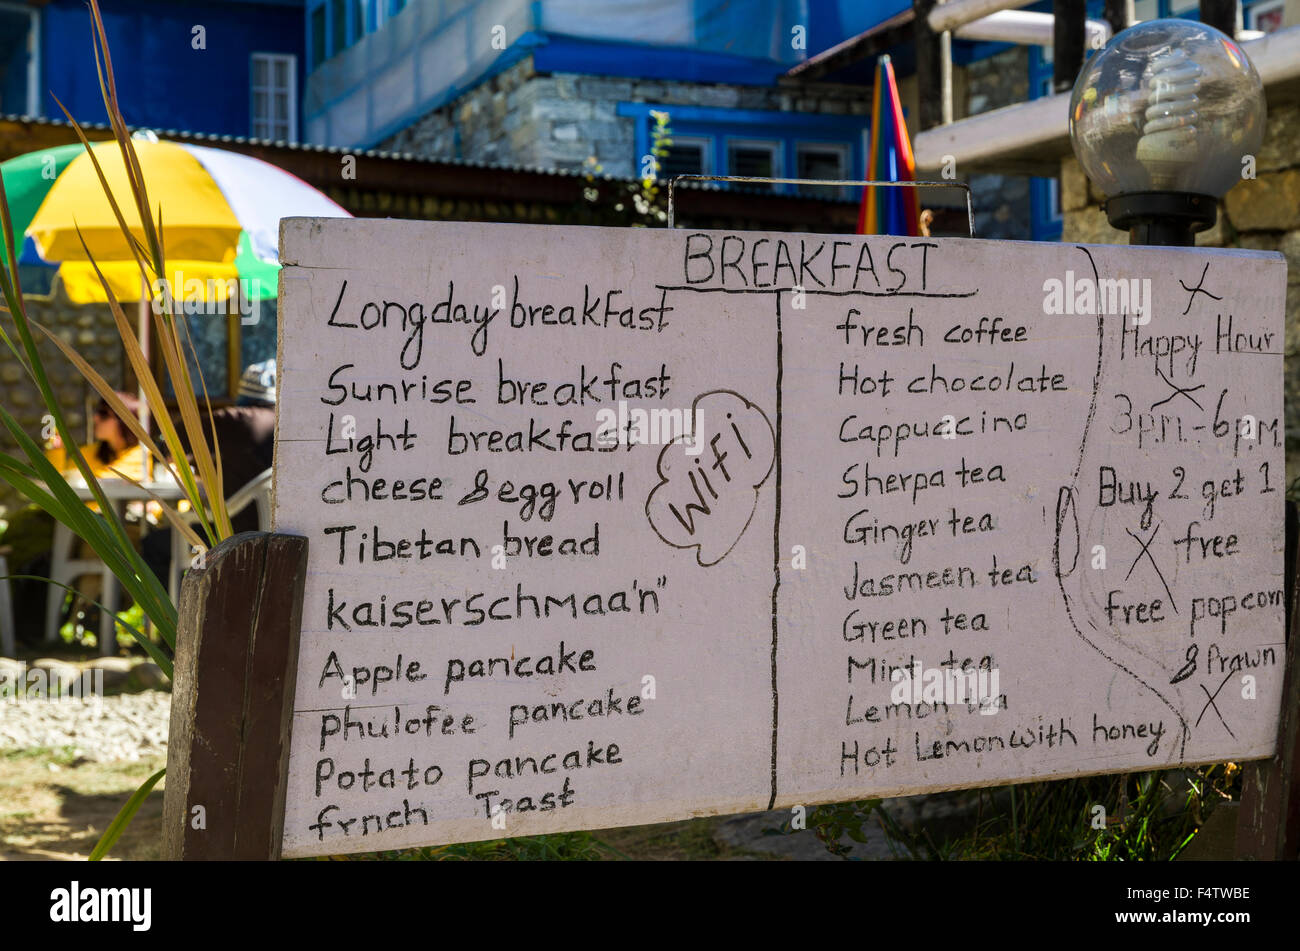 BREAKFAST
Longday breakFast
Sunrise breakfast
Light breakfast
cheese & egg roll
Tibetan bread
kaiserschmaa'n"
Apple pancake
phulofee pancake
Potato pancake
frnch Toast
Wifi
fresh coffee
Hot chocolate
Cappuccino
Sherpa tea
Ginger tea
Jasmeen tea
Green tea
Mint tea
Lemon tea
Hot Lemon with honey
Happy Hour
3p.m.-6p.m.
Buy 2 get 1
free
free popcorn
& Prawn
alamy stock photo
F4TWBE
www.alamy.com